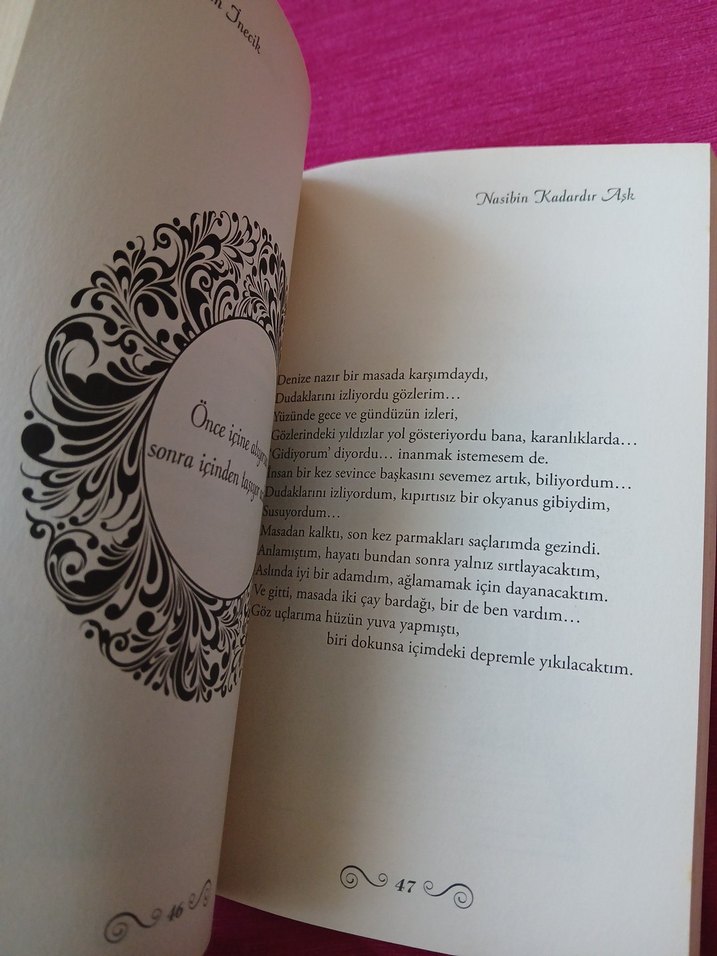 İnecik
Önce içine
sonra içinden
46
Nasibin Kadardır Aşk
Denize nazır bir masada karşımdaydı,
Dudaklarını izliyordu gözlerim…
Yüzünde gece ve gündüzün izleri,
Gözlerindeki yıldızlar yol gösteriyordu bana, karanlıklarda…
‘Gidiyorum’ diyordu… inanmak istemesem de.
İnsan bir kez sevince başkasını sevemez artık, biliyordum…
Dudaklarını izliyordum, kıpırtısız bir okyanus gibiydim,
Susuyordum…
Masadan kalktı, son kez parmakları saçlarımda gezindi.
Anlamıştım, hayatı bundan sonra yalnız sırtlayacaktım,
Aslında iyi bir adamdım, ağlamamak için dayanacaktım.
Ve gitti, masada iki çay bardağı, bir de ben vardım…
Göz uçlarıma hüzün yuva yapmıştı,
biri dokunsa içimdeki depremle yıkılacaktım.
47